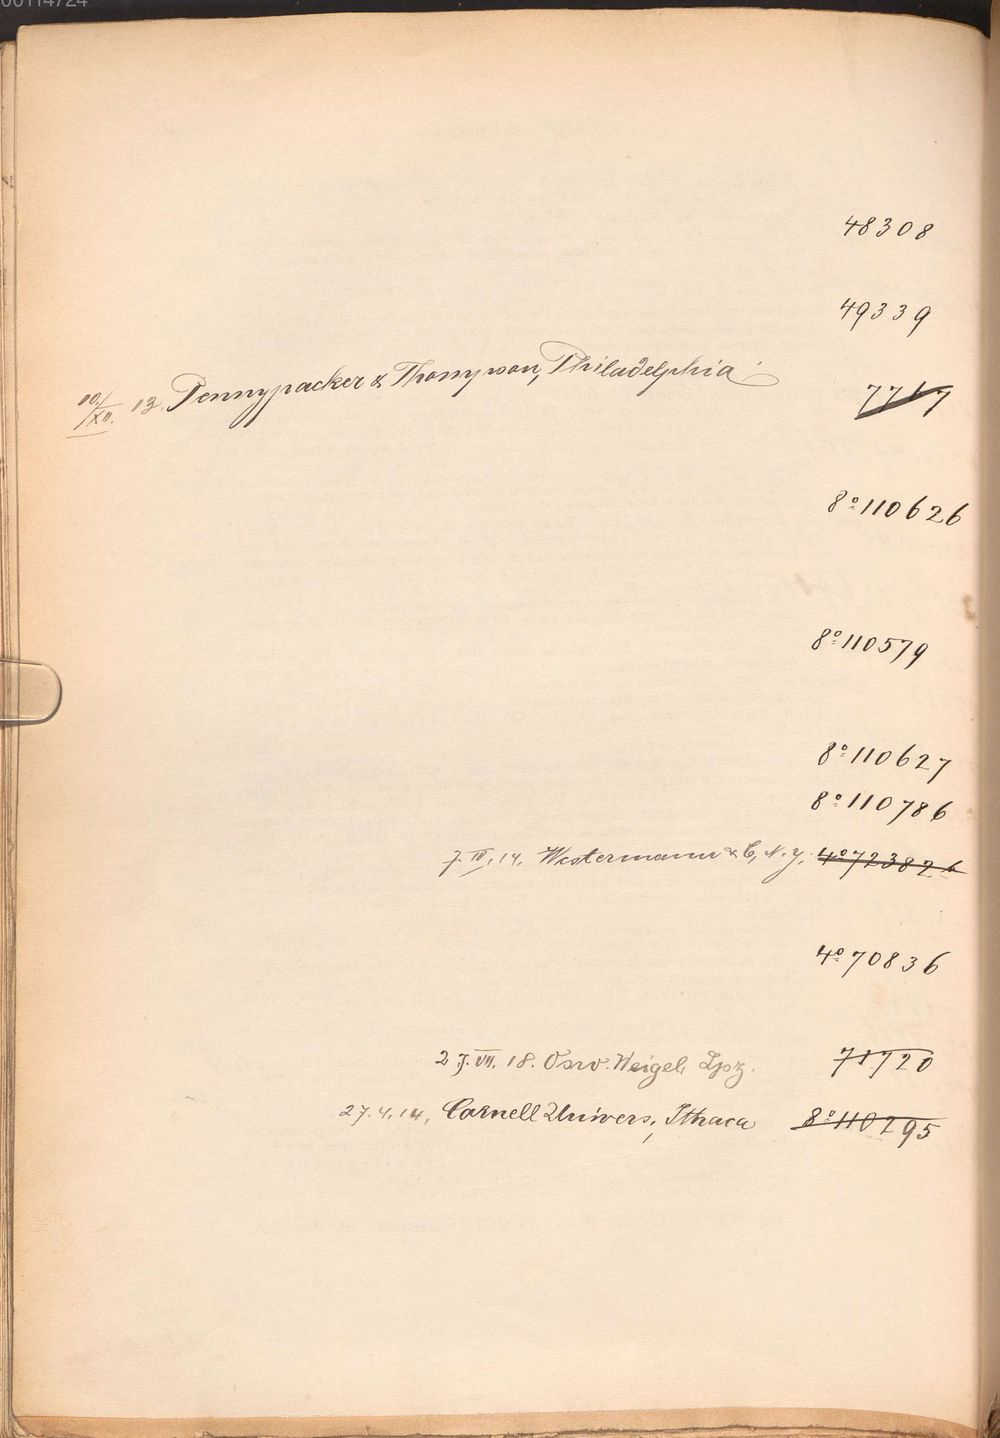 00114724
48308
49339
10./XII. 13. Pennypacker & Thompson, Philadelphia
7717
8º 110626
8º 110579
8º 110627
8º 110786
7. IV. 14. Westermann & C, N. Y. 4º 72382 b
4º 70836
27. VII. 18. Osw. Weigel, Lpz. 71720
27. 4. 14, Cornell Univers, Ithaca 8º 110295